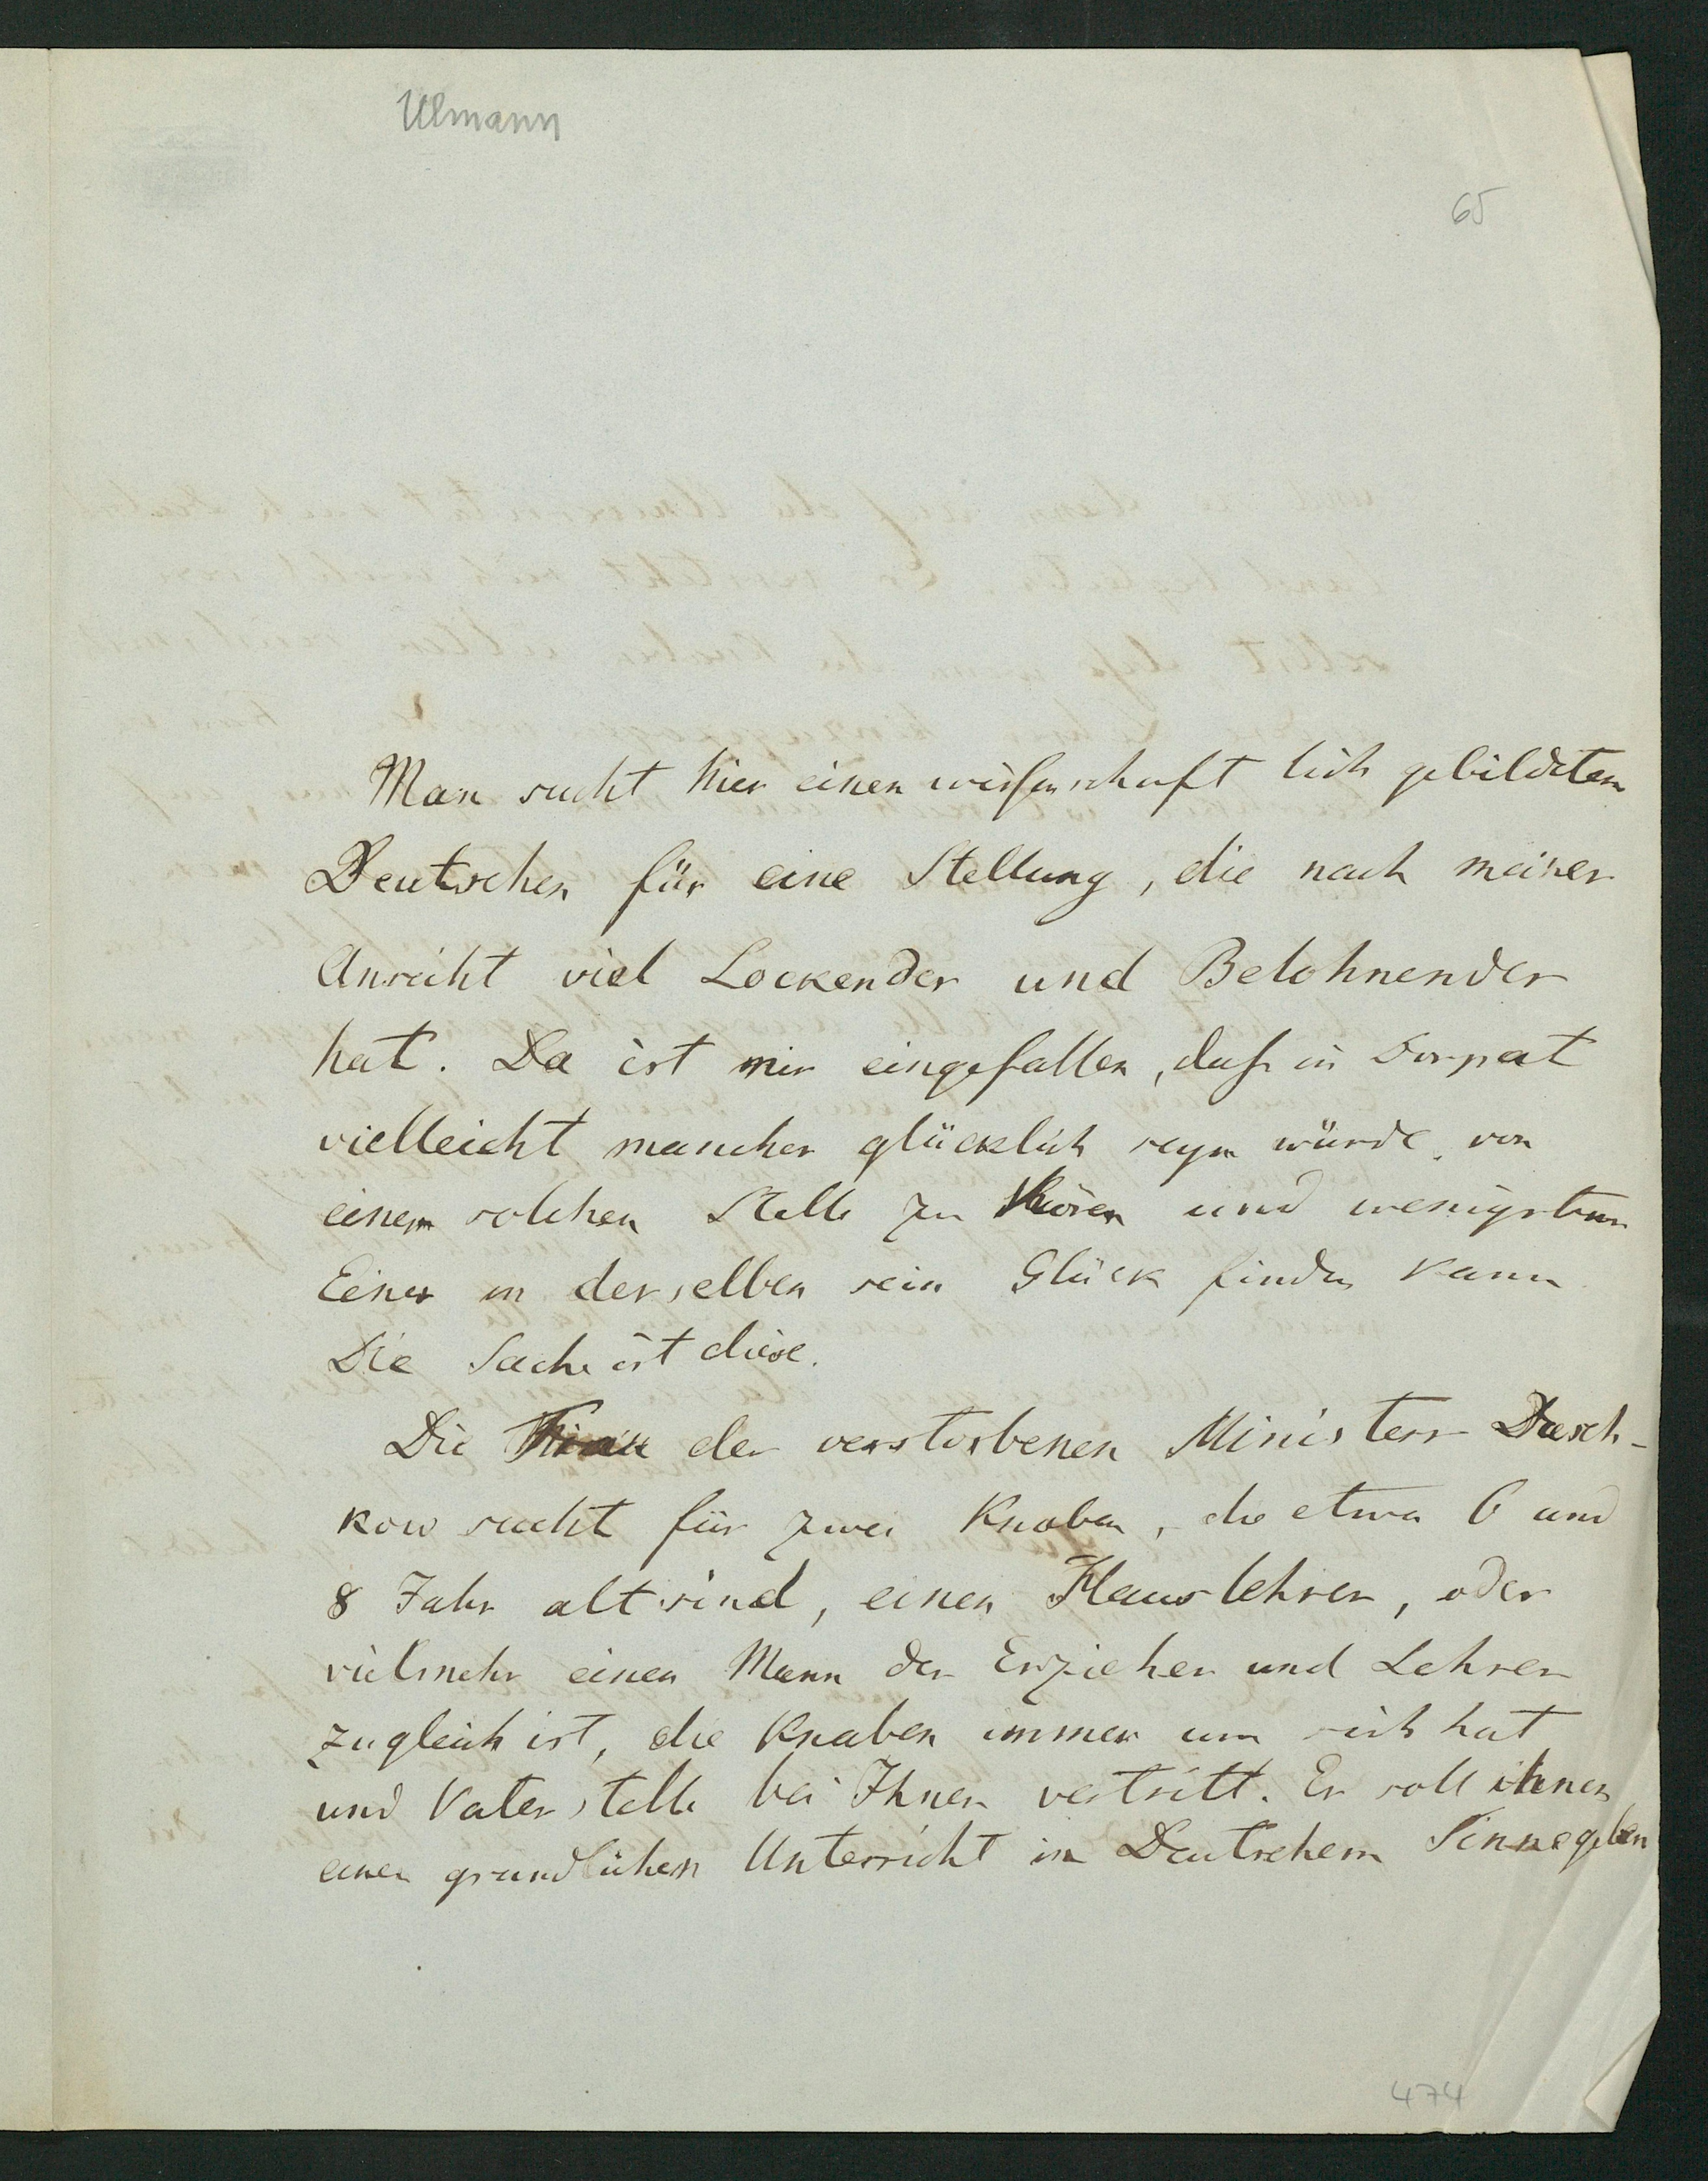 Ulmann
65
Man sucht hier einen wissenschaftlich gebildeten
Deutschen für eine Stellung, die nach meiner
Ansicht viel Lockendes und Belohnendes
hat. Da ist mir eingefallen, daß in Dorpat
vielleicht mancher glücklich seyn würde, von
einer solchen Stelle zu hören und wenigstens
Einer in derselben sein Glück finden kann
Die Sache ist diese.
Die Frau des verstorbenen Ministers Dasch-
kow sucht für zwei Knaben, die etwa 6 und
8 Jahr alt sind, einen Hauslehrer, oder
vielmehr einen Mann der Erzieher und Lehrer
zugleich ist, die Knaben immer um sich hat
und Vaterstelle bei Ihnen vertritt. Er soll ihnen
einen gründlichen Unterricht in Deutschem Sinne geben
474